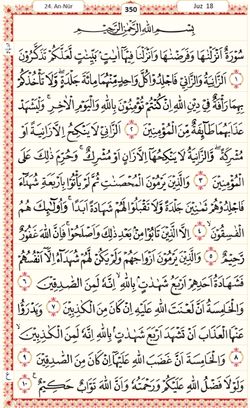 24. An-Nûr 350 Juz 18
بِسْمِ اللهِ الرَّحْمٰنِ الرَّحِيْمِ
سُوْرَةٌ اَنْزَلْنٰهَا وَفَرَضْنٰهَا وَاَنْزَلْنَا فِيْهَآ اٰيٰتٍۢ بَيِّنٰتٍ لَّعَلَّكُمْ تَذَكَّرُوْنَ
١ اَلزَّانِيَةُ وَالزَّانِيْ فَاجْلِدُوْا كُلَّ وَاحِدٍ مِّنْهُمَا مِائَةَ جَلْدَةٍ ۖ وَّلَا تَأْخُذْكُمْ
بِهِمَا رَأْفَةٌ فِيْ دِيْنِ اللهِ اِنْ كُنْتُمْ تُؤْمِنُوْنَ بِاللهِ وَالْيَوْمِ الْاٰخِرِۚ وَلْيَشْهَدْ
عَذَابَهُمَا طَآئِفَةٌ مِّنَ الْمُؤْمِنِيْنَ ٢ اَلزَّانِيْ لَا يَنْكِحُ اِلَّا زَانِيَةً اَوْ
مُشْرِكَةً ۖ وَّالزَّانِيَةُ لَا يَنْكِحُهَآ اِلَّا زَانٍ اَوْ مُشْرِكٌۚ وَحُرِّمَ ذٰلِكَ عَلَى
الْمُؤْمِنِيْنَ ٣ وَالَّذِيْنَ يَرْمُوْنَ الْمُحْصَنٰتِ ثُمَّ لَمْ يَأْتُوْا بِاَرْبَعَةِ شُهَدَآءَ
فَاجْلِدُوْهُمْ ثَمٰنِيْنَ جَلْدَةً وَّلَا تَقْبَلُوْا لَهُمْ شَهَادَةً اَبَدًاۚ وَاُولٰٓئِكَ هُمُ
الْفٰسِقُوْنَ ٤ اِلَّا الَّذِيْنَ تَابُوْا مِنْۢ بَعْدِ ذٰلِكَ وَاَصْلَحُوْاۚ فَاِنَّ اللهَ غَفُوْرٌ
رَّحِيْمٌ ٥ وَالَّذِيْنَ يَرْمُوْنَ اَزْوَاجَهُمْ وَلَمْ يَكُنْ لَّهُمْ شُهَدَآءُ اِلَّآ اَنْفُسُهُمْ
فَشَهَادَةُ اَحَدِهِمْ اَرْبَعُ شَهٰدٰتٍۢ بِاللهِۙ اِنَّهٗ لَمِنَ الصّٰدِقِيْنَ ٦
وَالْخَامِسَةُ اَنَّ لَعْنَتَ اللهِ عَلَيْهِ اِنْ كَانَ مِنَ الْكٰذِبِيْنَ ٧ وَيَدْرَؤُا
عَنْهَا الْعَذَابَ اَنْ تَشْهَدَ اَرْبَعَ شَهٰدٰتٍۢ بِاللهِۙ اِنَّهٗ لَمِنَ الْكٰذِبِيْنَۙ
٨ وَالْخَامِسَةَ اَنَّ غَضَبَ اللهِ عَلَيْهَآ اِنْ كَانَ مِنَ الصّٰدِقِيْنَ ٩
وَلَوْلَا فَضْلُ اللهِ عَلَيْكُمْ وَرَحْمَتُهٗ وَاَنَّ اللهَ تَوَّابٌ حَكِيْمٌ ١٠